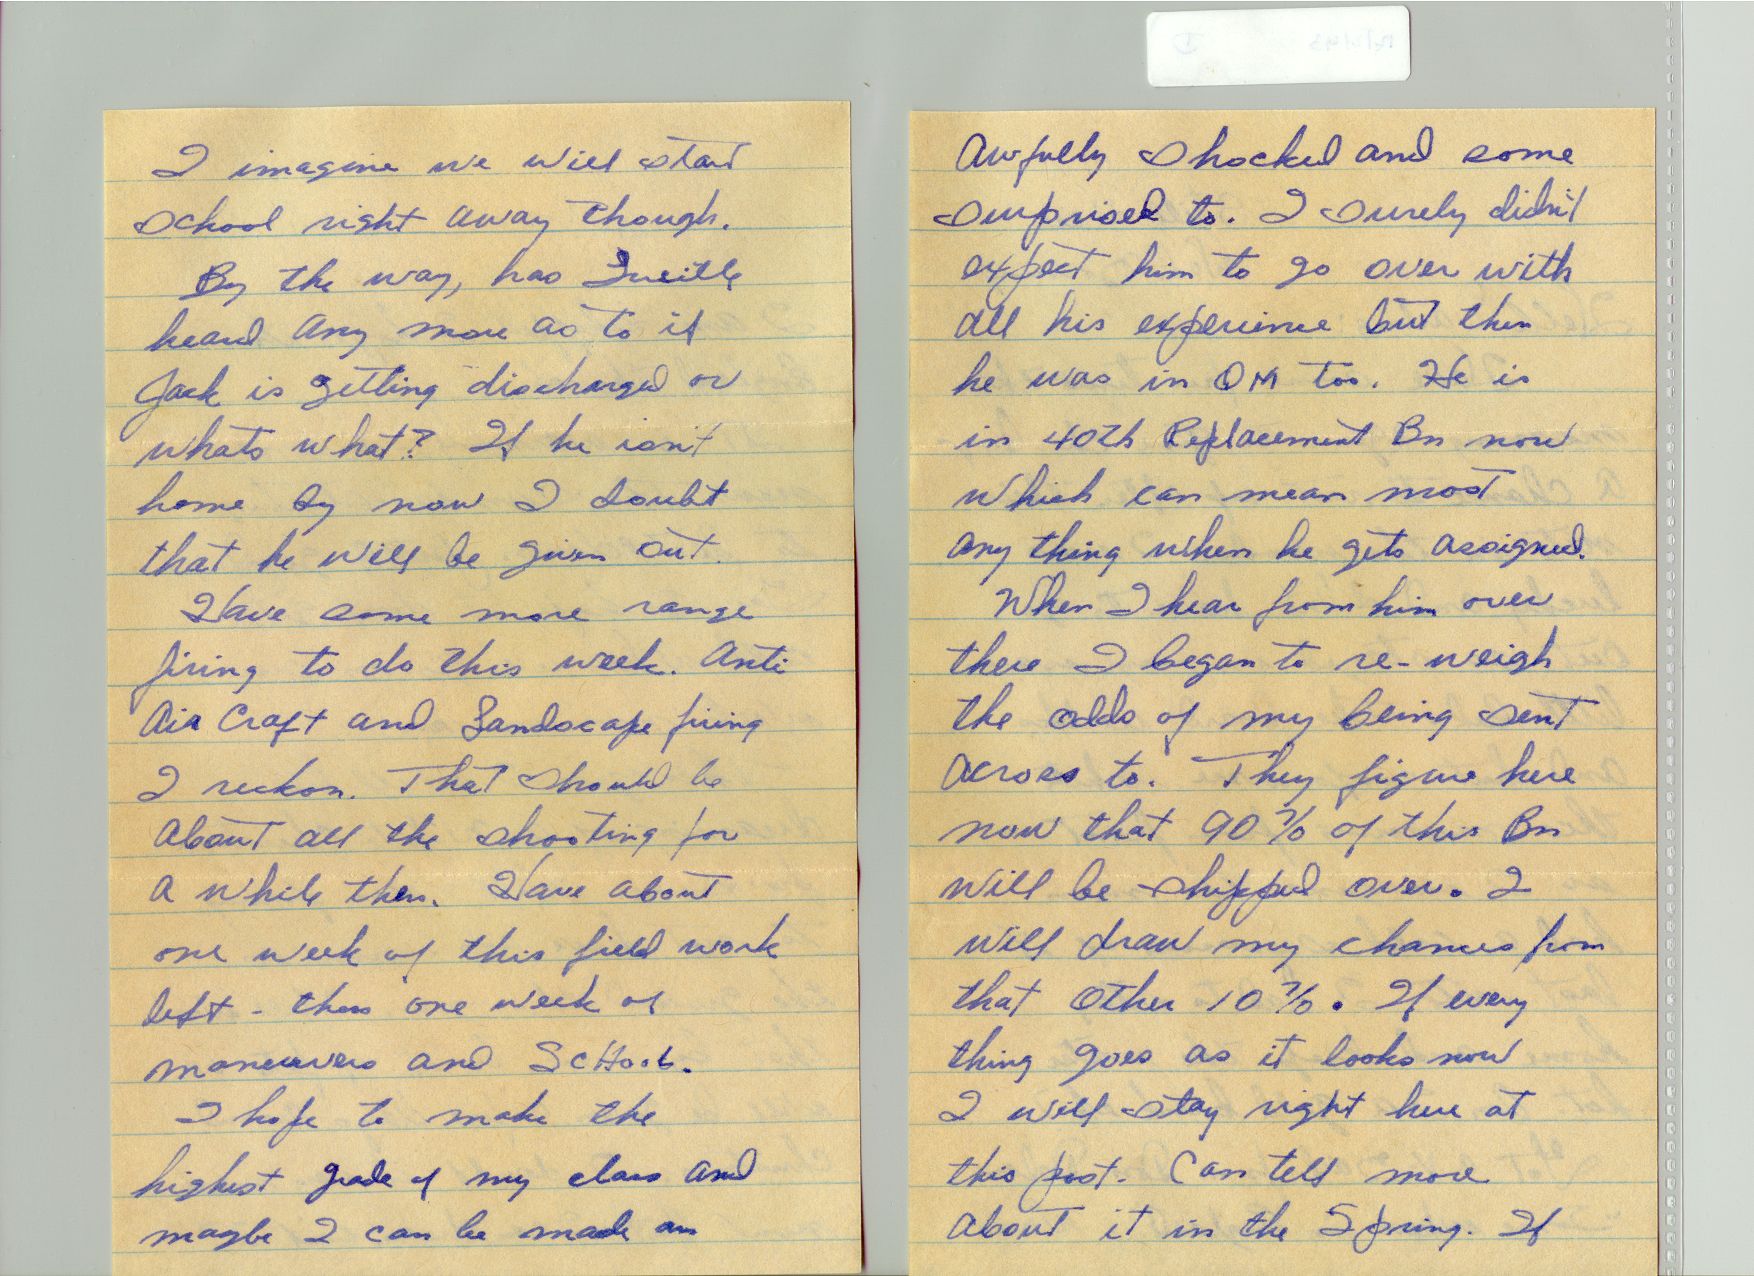 I imagine we will start
school right away though.
By the way, has Lucille
heard any more as to if
Jack is getting discharged or
whats what? If he isn't
home by now I doubt
that he will be given out.
Have some more range
firing to do this week. Anti
Air Craft and Landscape firing
I reckon. That should be
about all the shooting for
a while then. Have about
one week of this field work
left - then one week of
maneuvers and School.
I hope to make the
highest grade of my class and
maybe I can be made an
Awfully shocked and some
surprised to. I surely didn't
expect him to go over with
all his experience but then
he was in QM too. He is
in 40th Replacement Bn now
which can mean most
any thing when he gets assigned.
When I hear from him over
there I began to re-weigh
the odds of my being sent
across to. They figure here
now that 90% of this Bn
will be shipped over. I
will draw my chances from
that other 10%. If every
thing goes as it looks now
I will stay right here at
this post. Can tell more
about it in the Spring. If